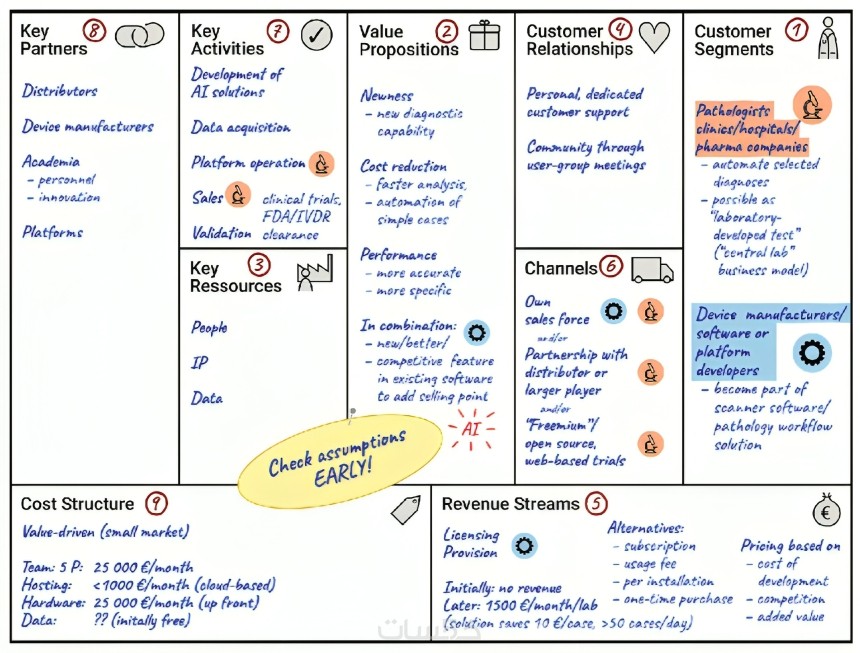 Key
Partners
8
Distributors
Device manufacturers
Academia
- personnel
- innovation
Platforms
Key
Activities
7
Development of
AI solutions
Data acquisition
Platform operation
Sales
clinical trials,
FDA/IVDR
Validation clearance
Key
Ressources
3
People
IP
Data
Value
Propositions
2
Newness
- new diagnostic
capability
Cost reduction
- faster analysis,
- automation of
simple cases
Performance
- more accurate
- more specific
In combination:
- new/better/
- competitive feature
in existing software
to add selling point
AI
Check assumptions
EARLY!
Customer
Relationships
4
Personal, dedicated
customer support
Community through
user-group meetings
Channels
6
Own
sales force
and/or
Partnership with
distributor or
larger player
and/or
"Freemium"/
open source,
web-based trials
Customer
Segments
1
Pathologists
clinics/hospitals/
pharma companies
- automate selected
diagnoses
- possible as
"laboratory-
developed test"
("central lab"
business model)
Device manufacturers/
software or
platform
developers
- become part of
scanner software/
pathology workflow
solution
Cost Structure
9
Value-driven (small market)
Team: 5 P: 25 000 €/month
Hosting: <1000 €/month (cloud-based)
Hardware: 25 000 €/month (up front)
Data: ?? (initally free)
Revenue Streams
5
€
Licensing
Provision
Initially: no revenue
Later: 1500 €/month/lab
(solution saves 10 €/case, >50 cases/day)
Alternatives:
- subscription
- usage fee
- per installation
- one-time purchase
Pricing based on
- cost of
development
- competition
- added value